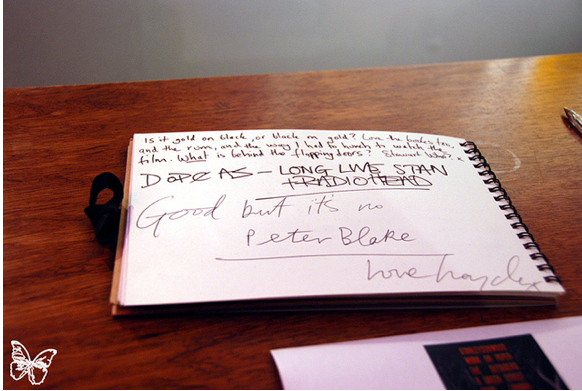 Is it gold on black, or black on gold? Love the books too,
and the rum, and the way I had to hunch to watch the
film. What is behind the flapping doors? Stewart Who?
DOPE AS – LONG LIVE STAN
+ RADIOHEAD
Good but it's no
Peter Blake
love